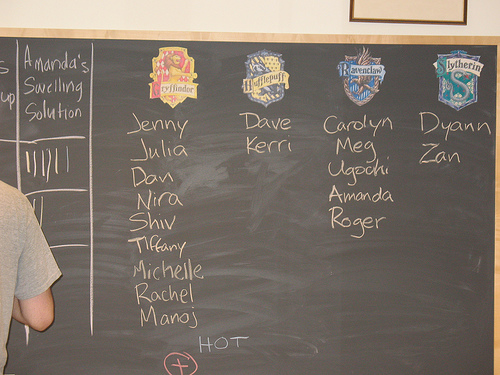 s
up
Amanda's
Swelling
Solution
Gryffindor
Jenny
Julia
Dan
Nira
Shiv
Tiffany
Michelle
Rachel
Manoj
Hufflepuff
Dave
Kerri
Ravenclaw
Carolyn
Meg
Ugochi
Amanda
Roger
Slytherin
Dyann
Zan
HOT
+